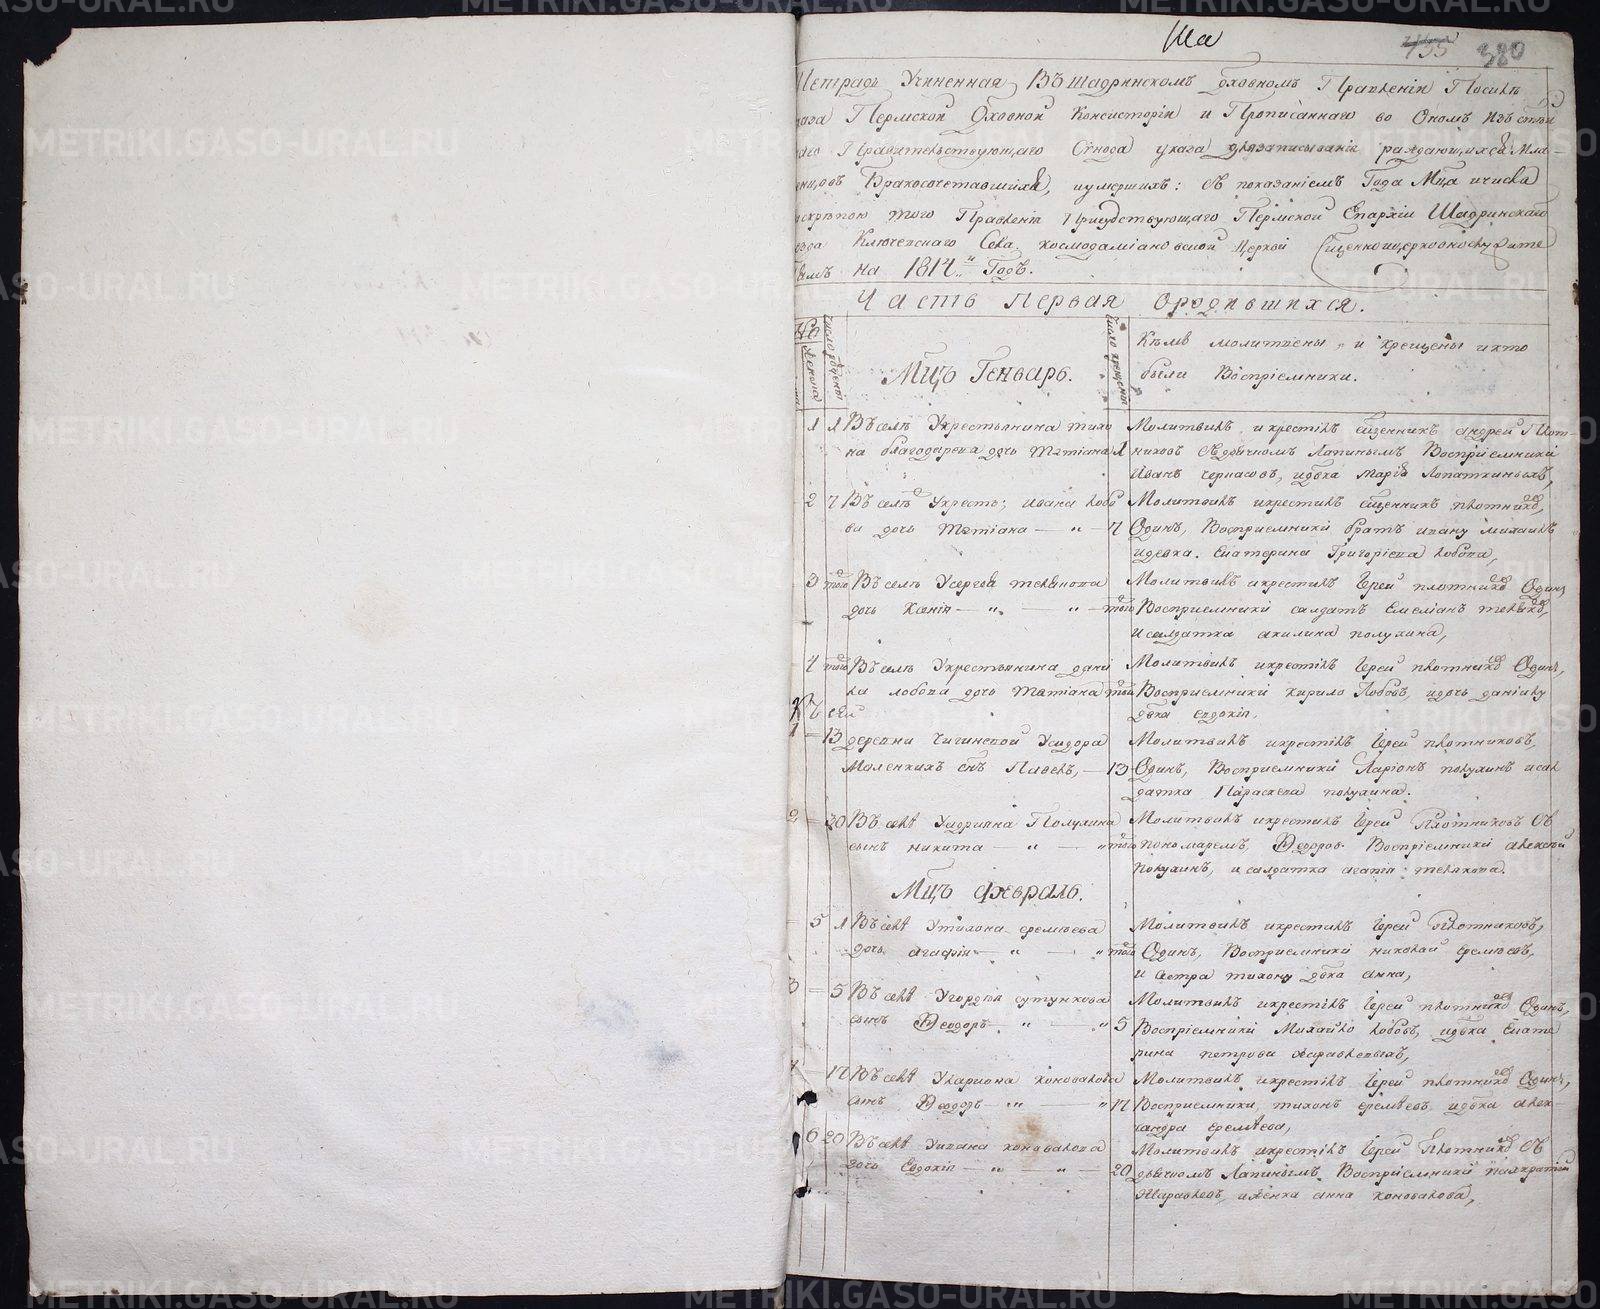 Ша
755 380
Тетрадь Учиненная Въ Шадринскомъ духовномъ Правленіи Посилѣ
Указа Пермской Духовной Консисторіи и Прописаннаго во Ономъ Изъ Святѣй
шаго Правительствующаго Сѵнода указа для записыванія раждающихся Мла
денцовъ Бракосочетавшихся, иумершихъ: Съ показаніемъ Года Мца ичисла
искрепою того Правленія Присудствующаго Пермской Епархіи Шадринскаго
уезда Ключевскаго Села космодаміановской Церкви Сщенноицерковнослужите
лямъ на 1814й Годъ.
Часть Первая ородившихся.
число рожденія
Мцъ Генварь.
число крещенія
Кѣмъ молитвены, и крещены икто
были Воспріемники.
1 1 Въ селѣ Укрестьянина тихо
на благодарева дочь Татіана 1
Молитвилъ, и крестилъ сщенникъ андрей Плот
никовъ Сдьячкомъ Лапинымъ Воспріемники
Иванъ черкасовъ, идѣвка Марія Лопаткиныхъ,
2 7 Въ селѣ Укрестъ; ивана лобо
ва дочь Татіана — " — 7
Молитвилъ икрестилъ сщенникъ плотниковъ,
Одинъ, Воспріемники братъ ивану михаилъ
идевка. Екатерина Григоріева лобова,
3 того Въ селѣ Усергея телякова
дочь Ксенія — " — " — того
Молитвилъ икрестилъ Іерей плотниковъ Одинъ,
Воспріемники салдатъ Емеліанъ теляковъ,
исалдатка акилина полухина,
4 того Въ селѣ Укрестьянина дани
ла лобова дочь Татіана того
Молитвилъ икрестилъ Іерей плотниковъ Одинъ,
Воспріемники кирило Лобовъ, идочь данилу
дѣвка евдокія.
1 — 13 деревни Чигинской Уисидора
Маленкихъ снъ Павелъ, — 13
Молитвилъ икрестилъ Іерей плотниковъ,
Одинъ, Воспріемники Ларіонъ полухинъ исал
датка Параскева полухина.
2 — 30 Въ селѣ Уандріяна Полухина
сынъ никита — " — " того
Молитвилъ икрестилъ Іерей Плотниковъ Съ
пономаремъ, Ѳедоров Воспріемники алексѣй
Полухинъ, и салдатка агатія телякова.
Мцъ февраль.
5 1 Въ селѣ Утихона еремѣева
дочь агафія — " — " того
Молитвилъ икрестилъ Іерей Плотниковъ,
Одинъ, Воспріемники николай еремѣевъ,
и сестра тихону дѣвка анна,
3 — 5 Въ селѣ Угордѣя сутункова
сынъ Ѳеодоръ — " — " 5
Молитвилъ икрестилъ Іерей плотниковъ Одинъ,
Воспріемники Михайло лобовъ, идѣвка Екате
рина петрова Журавлевыхъ,
— 17 Въ селѣ Улариона коновалова
сынъ Ѳеодоръ — " — " 17
Молитвилъ икрестилъ Іерей плотниковъ Одинъ,
Воспріемники, тихонъ еремѣевъ, идѣвка алек
сандра еремѣева,
6 20 Въ селѣ Уивана коновалова
дочь Евдокія — " — " — 20
Молитвилъ икрестилъ Іерей Плотниковъ Съ
дьячкомъ Лапинымъ, Воспріемники панкратій
Журавлевъ, иженка анна коновалова,